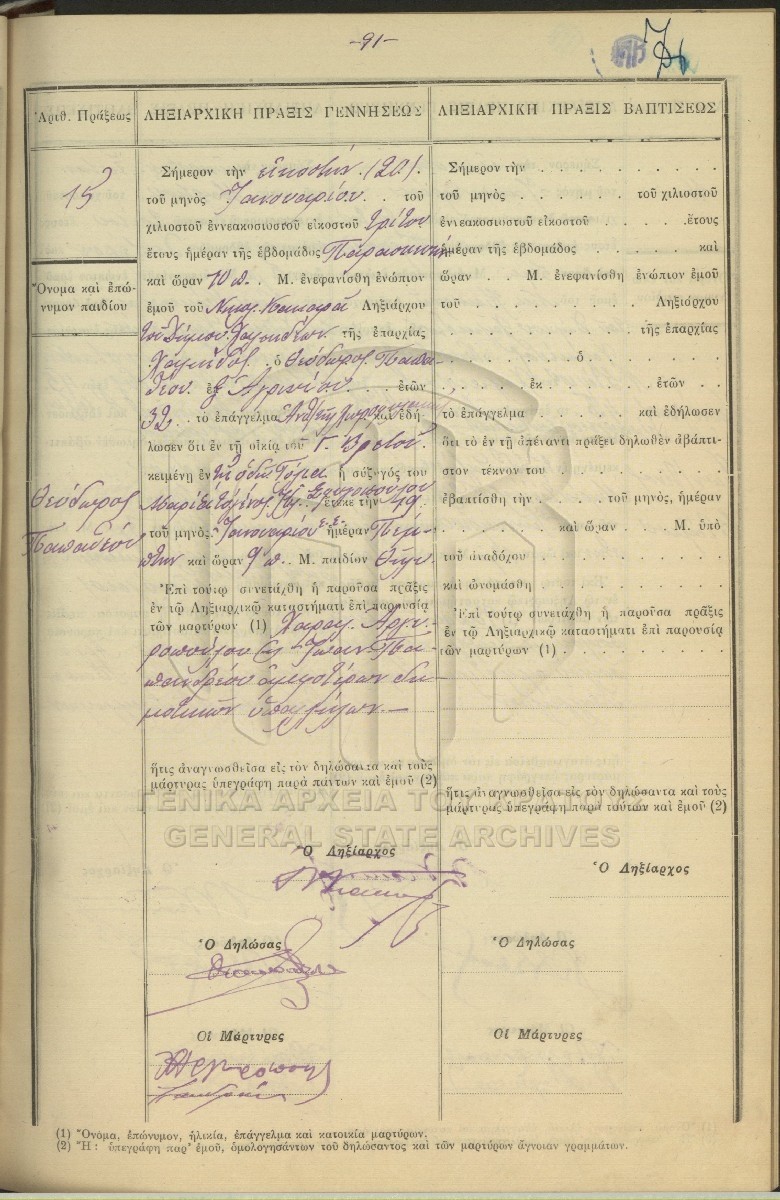 -91-
Ἀριθ. Πράξεως
ΛΗΞΙΑΡΧΙΚΗ ΠΡΑΞΙΣ ΓΕΝΝΗΣΕΩΣ
ΛΗΞΙΑΡΧΙΚΗ ΠΡΑΞΙΣ ΒΑΠΤΙΣΕΩΣ
15
Ὄνομα καὶ ἐπώ-
νυμον παιδίου
Θεόδωρος
Παπαδέου
Σήμερον τὴν εἰκοστὴν (20).
τοῦ μηνὸς Ἰανουαρίου . . τοῦ
χιλιοστοῦ ἐννεακοσιοστοῦ εἰκοστοῦ τρίτου
ἔτους ἡμέραν τῆς ἑβδομάδος Παρασκευὴν
καὶ ὥραν 10 π. . Μ. ἐνεφανίσθη ἐνώπιον
ἐμοῦ τοῦ Νικολ. Ληξιάρχου
τοῦ Δήμου Χαλκιδέων τῆς ἐπαρχίας
Χαλκίδος . ὁ Θεόδωρος Παπα-
δέου ἐξ Ἀγρινίου ἐτῶν
32 . . τὸ ἐπάγγελμα καὶ ἐδή-
λωσεν ὅτι ἐν τῇ οἰκίᾳ τοῦ Γ. Βρεττοῦ.
κειμένῃ ἐν τῇ ὁδῷ ἡ σύζυγός του
Μαρία ἔτεκε τὴν 19
τοῦ μηνὸς Ἰανουαρίου ἐ.ἔ. ἡμέραν Πέμ-
πτην καὶ ὥραν 9 π. . Μ. παιδίον Θῆλυ.
Ἐπὶ τούτῳ συνετάχθη ἡ παροῦσα πρᾶξις
ἐν τῷ Ληξιαρχικῷ καταστήματι ἐπὶ παρουσίᾳ
τῶν μαρτύρων (1) Χαραλ. Ἀργυ-
ροπούλου καὶ Ἰωάν. Πα-
πανδρέου ἀμφοτέρων δη-
μοτικῶν ὑπαλλήλων
ἥτις ἀναγνωσθεῖσα εἰς τὸν δηλώσαντα καὶ τοὺς
μάρτυρας ὑπεγράφη παρὰ πάντων καὶ ἐμοῦ (2)
Ὁ Ληξίαρχος
Ὁ Δηλώσας
Οἱ Μάρτυρες
Σήμερον τὴν . . . . . . . . . .
τοῦ μηνὸς . . . . . . . τοῦ χιλιοστοῦ
ἐννεακοσιοστοῦ εἰκοστοῦ . . . . . . ἔτους
ἡμέραν τῆς ἑβδομάδος . . . . . . καὶ
ὥραν . . Μ. ἐνεφανίσθη ἐνώπιον ἐμοῦ
τοῦ . . . . . . . . . . Ληξιάρχου
. . . . . . . . . . τῆς ἐπαρχίας
. . . . . . . ὁ . . . . . . .
. . . . . . ἐκ . . . . . . ἐτῶν . .
τὸ ἐπάγγελμα . . . . . . καὶ ἐδήλωσεν
ὅτι τὸ ἐν τῇ ἀπέναντι πράξει δηλωθὲν ἀβάπτι-
στον τέκνον του . . . . . . . . .
ἐβαπτίσθη τὴν . . . . τοῦ μηνὸς, ἡμέραν
. . . . . . . καὶ ὥραν . . . Μ. ὑπὸ
τοῦ ἀναδόχου . . . . . . . . . .
καὶ ὠνομάσθη . . . . . . . . . .
Ἐπὶ τούτῳ συνετάχθη ἡ παροῦσα πρᾶξις
ἐν τῷ Ληξιαρχικῷ καταστήματι ἐπὶ παρουσίᾳ
τῶν μαρτύρων (1) . . . . . . . . .
ἥτις ἀναγνωσθεῖσα εἰς τὸν δηλώσαντα καὶ τοὺς
μάρτυρας ὑπεγράφη παρὰ τούτων καὶ ἐμοῦ (2)
Ὁ Ληξίαρχος
Ὁ Δηλώσας
Οἱ Μάρτυρες
ΓΕΝΙΚΑ ΑΡΧΕΙΑ ΤΟΥ ΚΡΑΤΟΥΣ
GENERAL STATE ARCHIVES
(1) Ὄνομα, ἐπώνυμον, ἡλικία, ἐπάγγελμα καὶ κατοικία μαρτύρων.
(2) Ἢ: ὑπεγράφη παρ' ἐμοῦ, ὁμολογησάντων τοῦ δηλώσαντος καὶ τῶν μαρτύρων ἄγνοιαν γραμμάτων.